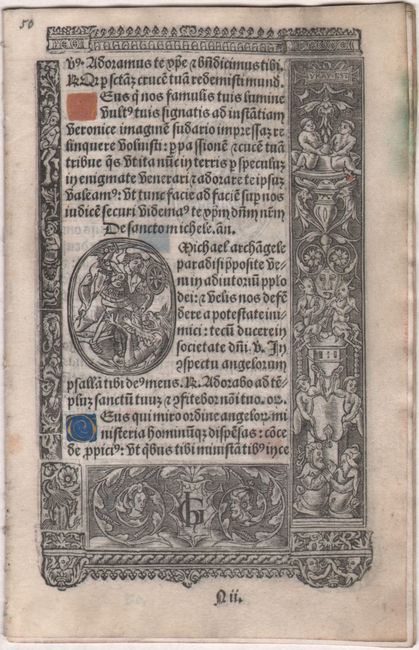 50
vꝰ Adoramus te xp̄e ⁊ bn̄dicimus tibi.
℟. Q̇ꝛ ꝑ sctāꝫ crucē tuā redemisti mund.
Eus q̇ nos famulis tuis lumine
vultꝰ tuis signatis ad instātiam
veronice imaginē sudario impressaꝫ re
linquere voluisti: ꝑ passionē ⁊ crucē tuā
tribue q̄s vt ita nūc in terris ꝑ speculuꝫ
in enigmate venerari ⁊ adorare te ipsuꝫ
valeamꝰ: vt tunc facie ad faciē suꝑ nos
iudicē securi videamꝰ te xp̄m dn̄m nr̄m
De sancto michele. an̄.
Michael archāgele
paradisi p̄posite ve-
ni in adiutoriū pplo
dei: ⁊ velis nos defē
dere a potestate ini-
mici: tecū ducere in
societate dn̄i. v̄. In
ɔspectu angelorum
psallā tibi deꝰ meus. ℟. Adorabo ad tē-
pluꝫ sanctū tuuꝫ ⁊ ɔfitebor noī tuo. or̄o.
Eus qui miro ordine angeloꝝ mi
nisteria hominūqꝫ dispēsas: cōce
de ꝓpiciꝰ: vt qbus tibi ministātibꝰ in ce
G
N ii.